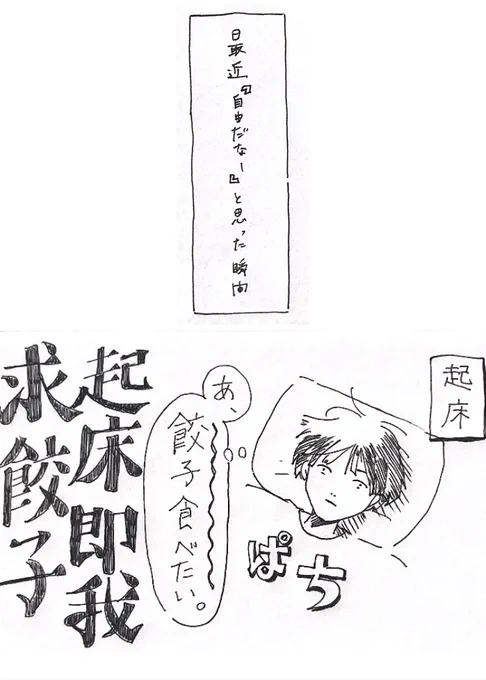 最近『自由だなー』と思った瞬間
起床
ぱち
あ、
餃子食べたい。
起床即我
求餃子